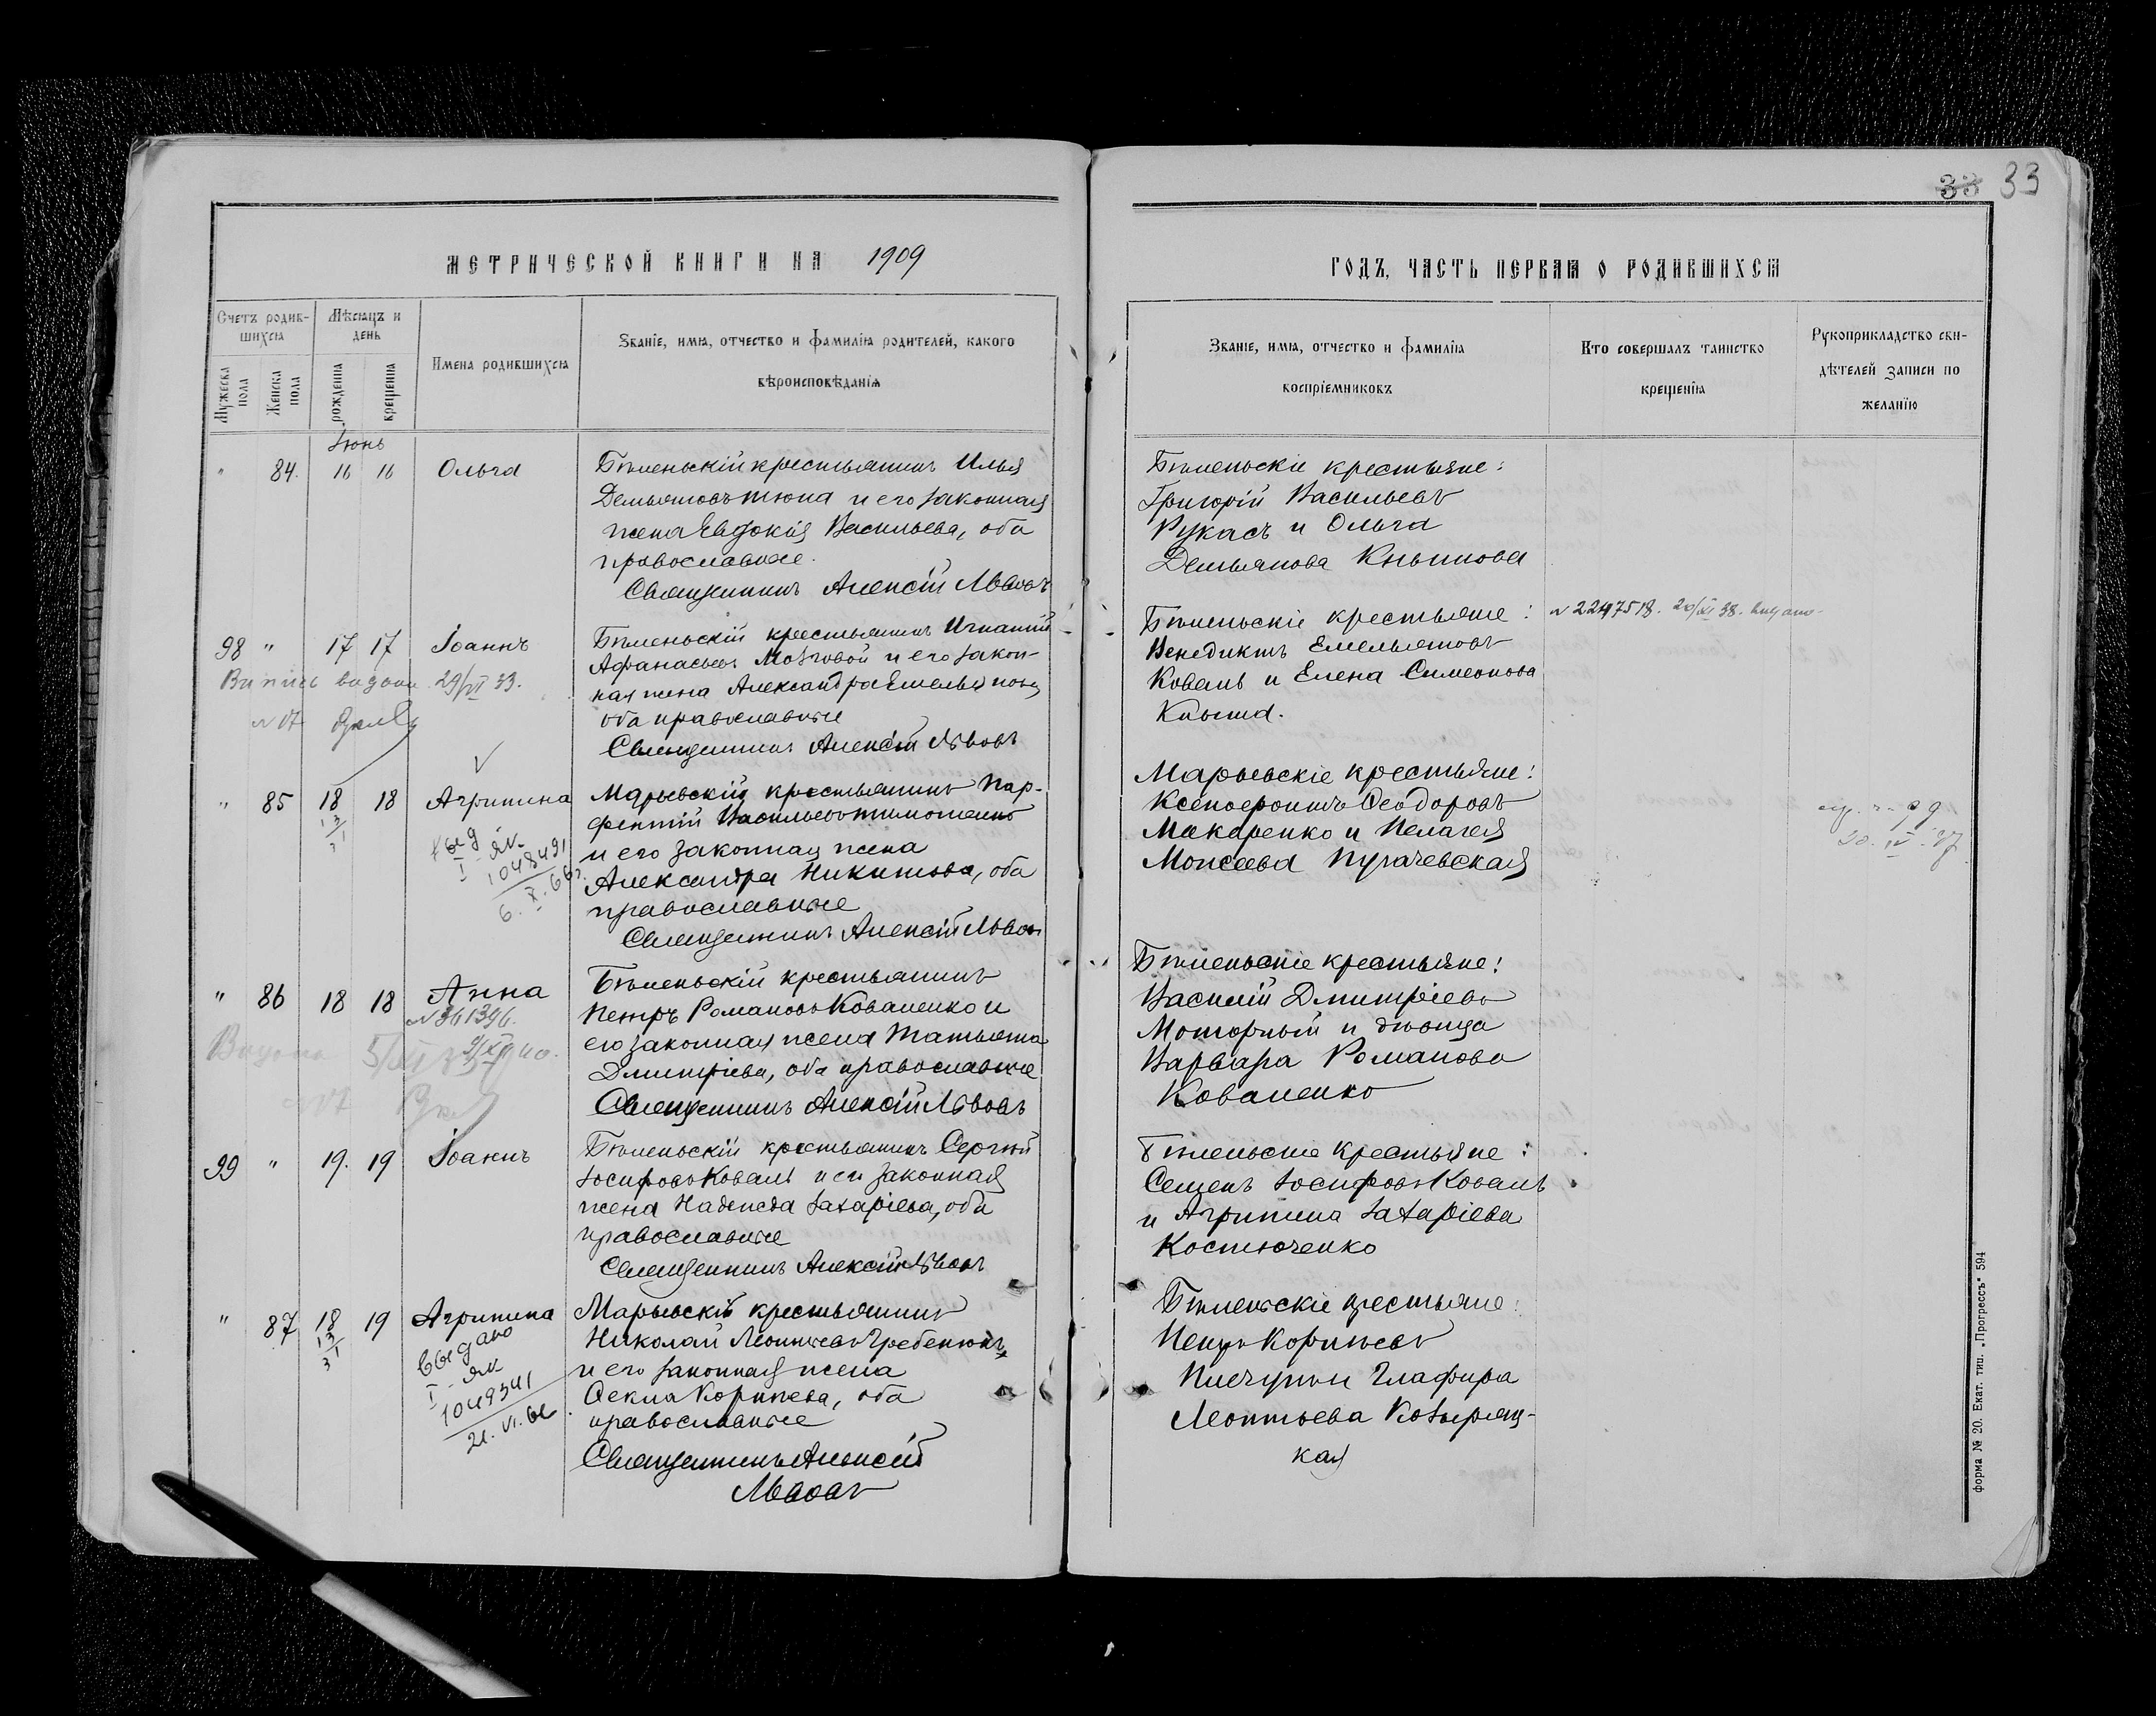 33 33
МЕТРИЧЕСКОЙ КНИГИ НА 1909
ГОДЪ, ЧАСТЬ ПЕРВАЯ О РОДИВШИХСЯ
Счетъ родив-
шихся
Мужеска пола
Женска пола
Мѣсяцъ и
день
рожденія
крещенія
Имена родившихся
Званіе, имя, отчество и фамилія родителей, какого
вѣроисповѣданія
Званіе, имя, отчество и фамилія
воспріемниковъ
Кто совершалъ таинство
крещенія
Рукоприкладство сви-
дѣтелей записи по
желанію
Іюнь
" 84. 16 16 Ольга
Бѣленьскій крестьянинъ Илья
Демьяновъ Тюпа и его законная
жена Евдокія Васильева, оба
православные.
Священникъ Алексій Львовъ
Бѣленьскіе крестьяне:
Григорій Васильевъ
Рукасъ и Ольга
Демьянова
98 " 17 17 Іоаннъ
29/VI 33.
Бѣленьскій крестьянинъ Игнатій
Афанасьевъ Мозговой и его закон-
ная жена Александра Емельянова
оба православные
Священникъ Алексій Львовъ
Бѣленьскіе крестьяне:
Венедиктъ Емельяновъ
Коваль и Елена Симеонова
Книша.
N 2247518. 20/XI 38. видано
" 85 18 18 Агрипина
I - ЯК
1048491
6. X. 66г.
Марьевскій крестьянинъ Пар-
фентій Васильевъ Тимошенко
и его законная жена
Александра Никитова, оба
православные
Священникъ Алексій Львовъ
Марьевскіе крестьяне:
Ксенофонтъ Ѳеодоровъ
Макаренко и Пелагея
Моисеева Пугачевская
" 86 18 18 Анна
N 361396.
Бѣленьскій крестьянинъ
Петръ Романовъ Коваленко и
его законная жена Татьяна
Дмитріева, оба православные
Священникъ Алексій Львовъ
Бѣленьскіе крестьяне:
Василій Дмитріевъ
Моторный и дѣвица
Варвара Романова
Коваленко
99 " 19. 19 Іоаннъ
Бѣленьскій крестьянинъ Сергѣй
Іосифовъ Коваль и его законная
жена Надежда Захаріева, оба
православные
Священникъ Алексій Львовъ
Бѣленьскіе крестьяне:
Семенъ Іосифовъ Коваль
и Агрипина Захаріева
Костюченко
" 87 18 19 Агрипина
выдано
I - ЯК
1049341
21. VI. 66
Марьевскій крестьянинъ
Николай Леонтьевъ Гребенюкъ
и его законная жена
Ѳекла Корнѣева, оба
православные
Священникъ Алексій
Львовъ
Бѣленьскіе крестьяне:
Петръ Корнѣевъ
Пичугинъ Глафира
Леонтьева Козыряц-
кая
форма № 20. Екат. тип. „Прогрессъ" 594